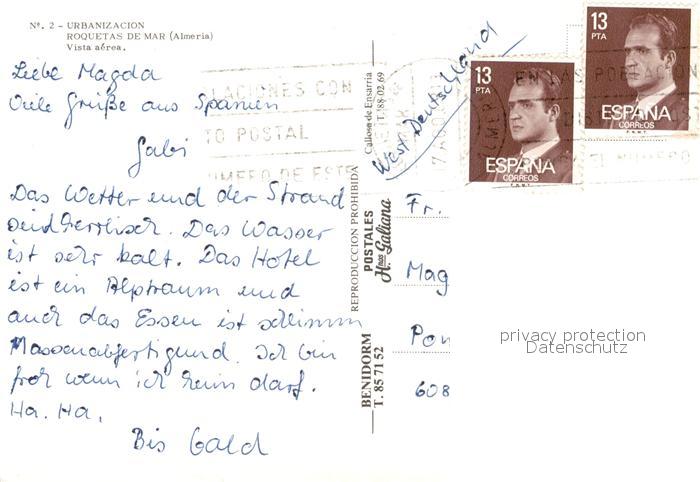 Nº. 2 - URBANIZACION
ROQUETAS DE MAR (Almeria)
Vista aérea.
Liebe Magda
Viele Grüße aus Spanien
Gabi
Das Wetter und der Strand
sind herrlisch. Das Wasser
ist sehr kalt. Das Hotel
ist ein Alptraum und
auch das Essen ist schlimm
Massenabfertigund. Ich bin
froh wenn ich heim darf.
Ha. Ha.
Bis Bald
LACIONES CON
TO POSTAL
UMERO DE ESTE
Callosa de Ensarria
T. 88-02 69
REPRODUCCION PROHIBIDA
POSTALES
Hnos Galiana
BENIDORM
T. 85 71 52
West Deutschland
17 AGO
13
PTA
ESPAÑA
CORREOS
F.N.M.T.
13
PTA
ESPAÑA
CORREOS
F.N.M.T.
EN LAS POBLACION
EL NUMERO
Fr.
Mag
Pon
608
privacy protection
Datenschutz